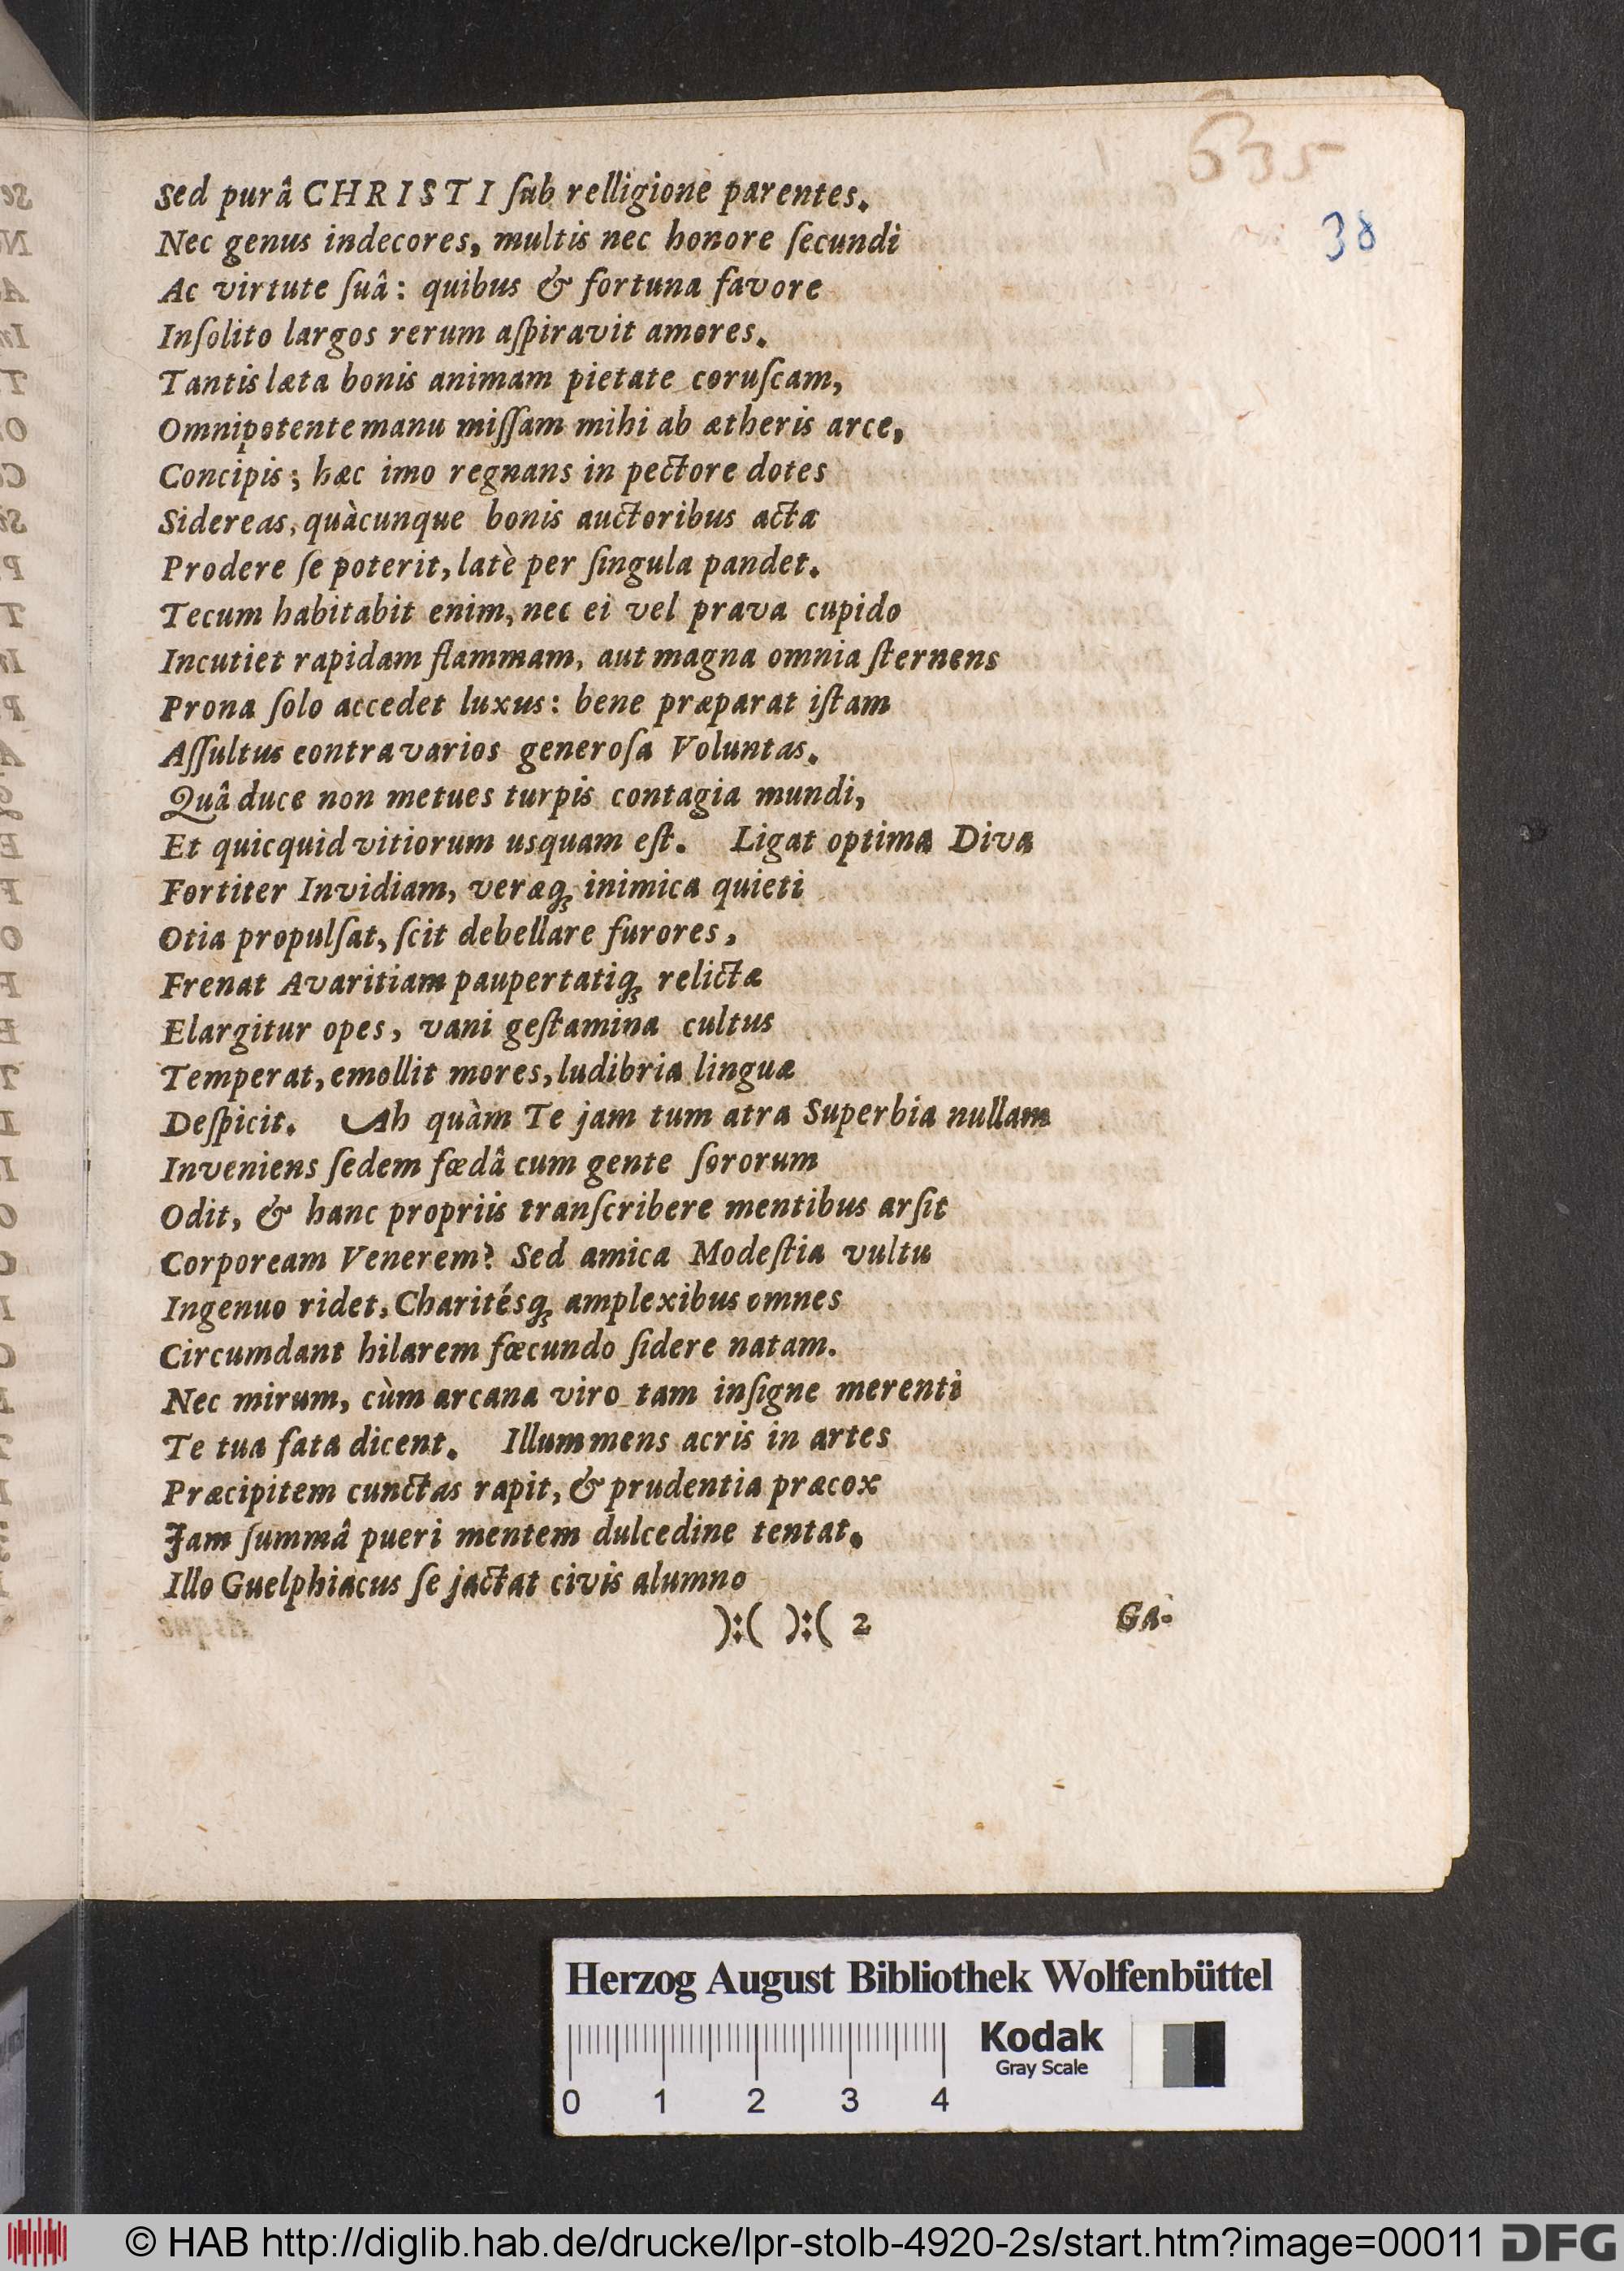 635
38
Sed purâ CHRISTI ſub relligione parentes.
Nec genus indecores, multis nec honore ſecundi
Ac virtute ſuâ: quibus & fortuna favore
Inſolito largos rerum aſpiravit amores.
Tantis læta bonis animam pietate coruſcam,
Omnipotente manu miſſam mihi ab ætheris arce,
Concipis; hæc imo regnans in pectore dotes
Sidereas, quàcunque bonis auctoribus acta
Prodere ſe poterit, latè per ſingula pandet.
Tecum habitabit enim, nec ei vel prava cupido
Incutiet rapidam flammam, aut magna omnia ſternens
Prona ſolo accedet luxus: bene præparat iſtam
Aſſultus eontra varios generoſa Voluntas.
Quâ duce non metues turpis contagia mundi,
Et quicquid vitiorum usquam eſt. Ligat optima Diva
Fortiter Invidiam, veræq́; inimica quieti
Otia propulſat, ſcit debellare furores,
Frenat Avaritiam paupertatiq́; relictæ
Elargitur opes, vani geſtamina cultus
Temperat, emollit mores, ludibria linguæ
Deſpicit. Ah quàm Te jam tum atra Superbia nullam
Inveniens ſedem fœdâ cum gente ſororum
Odit, & hanc propriis tranſcribere mentibus arſit
Corpoream Venerem? Sed amica Modeſtia vultu
Ingenuo ridet, Charitésq́; amplexibus omnes
Circumdant hilarem fœcundo ſidere natam.
Nec mirum, cùm arcana viro tam inſigne merenti
Te tua fata dicent. Illum mens acris in artes
Præcipitem cunctas rapit, & prudentia præcox
Jam ſummâ pueri mentem dulcedine tentat.
Illo Guelphiacus ſe jactat civis alumno
):( ):( 2 Ga-
Herzog August Bibliothek Wolfenbüttel
Kodak
Gray Scale
0 1 2 3 4
© HAB http://diglib.hab.de/drucke/lpr-stolb-4920-2s/start.htm?image=00011 DFG